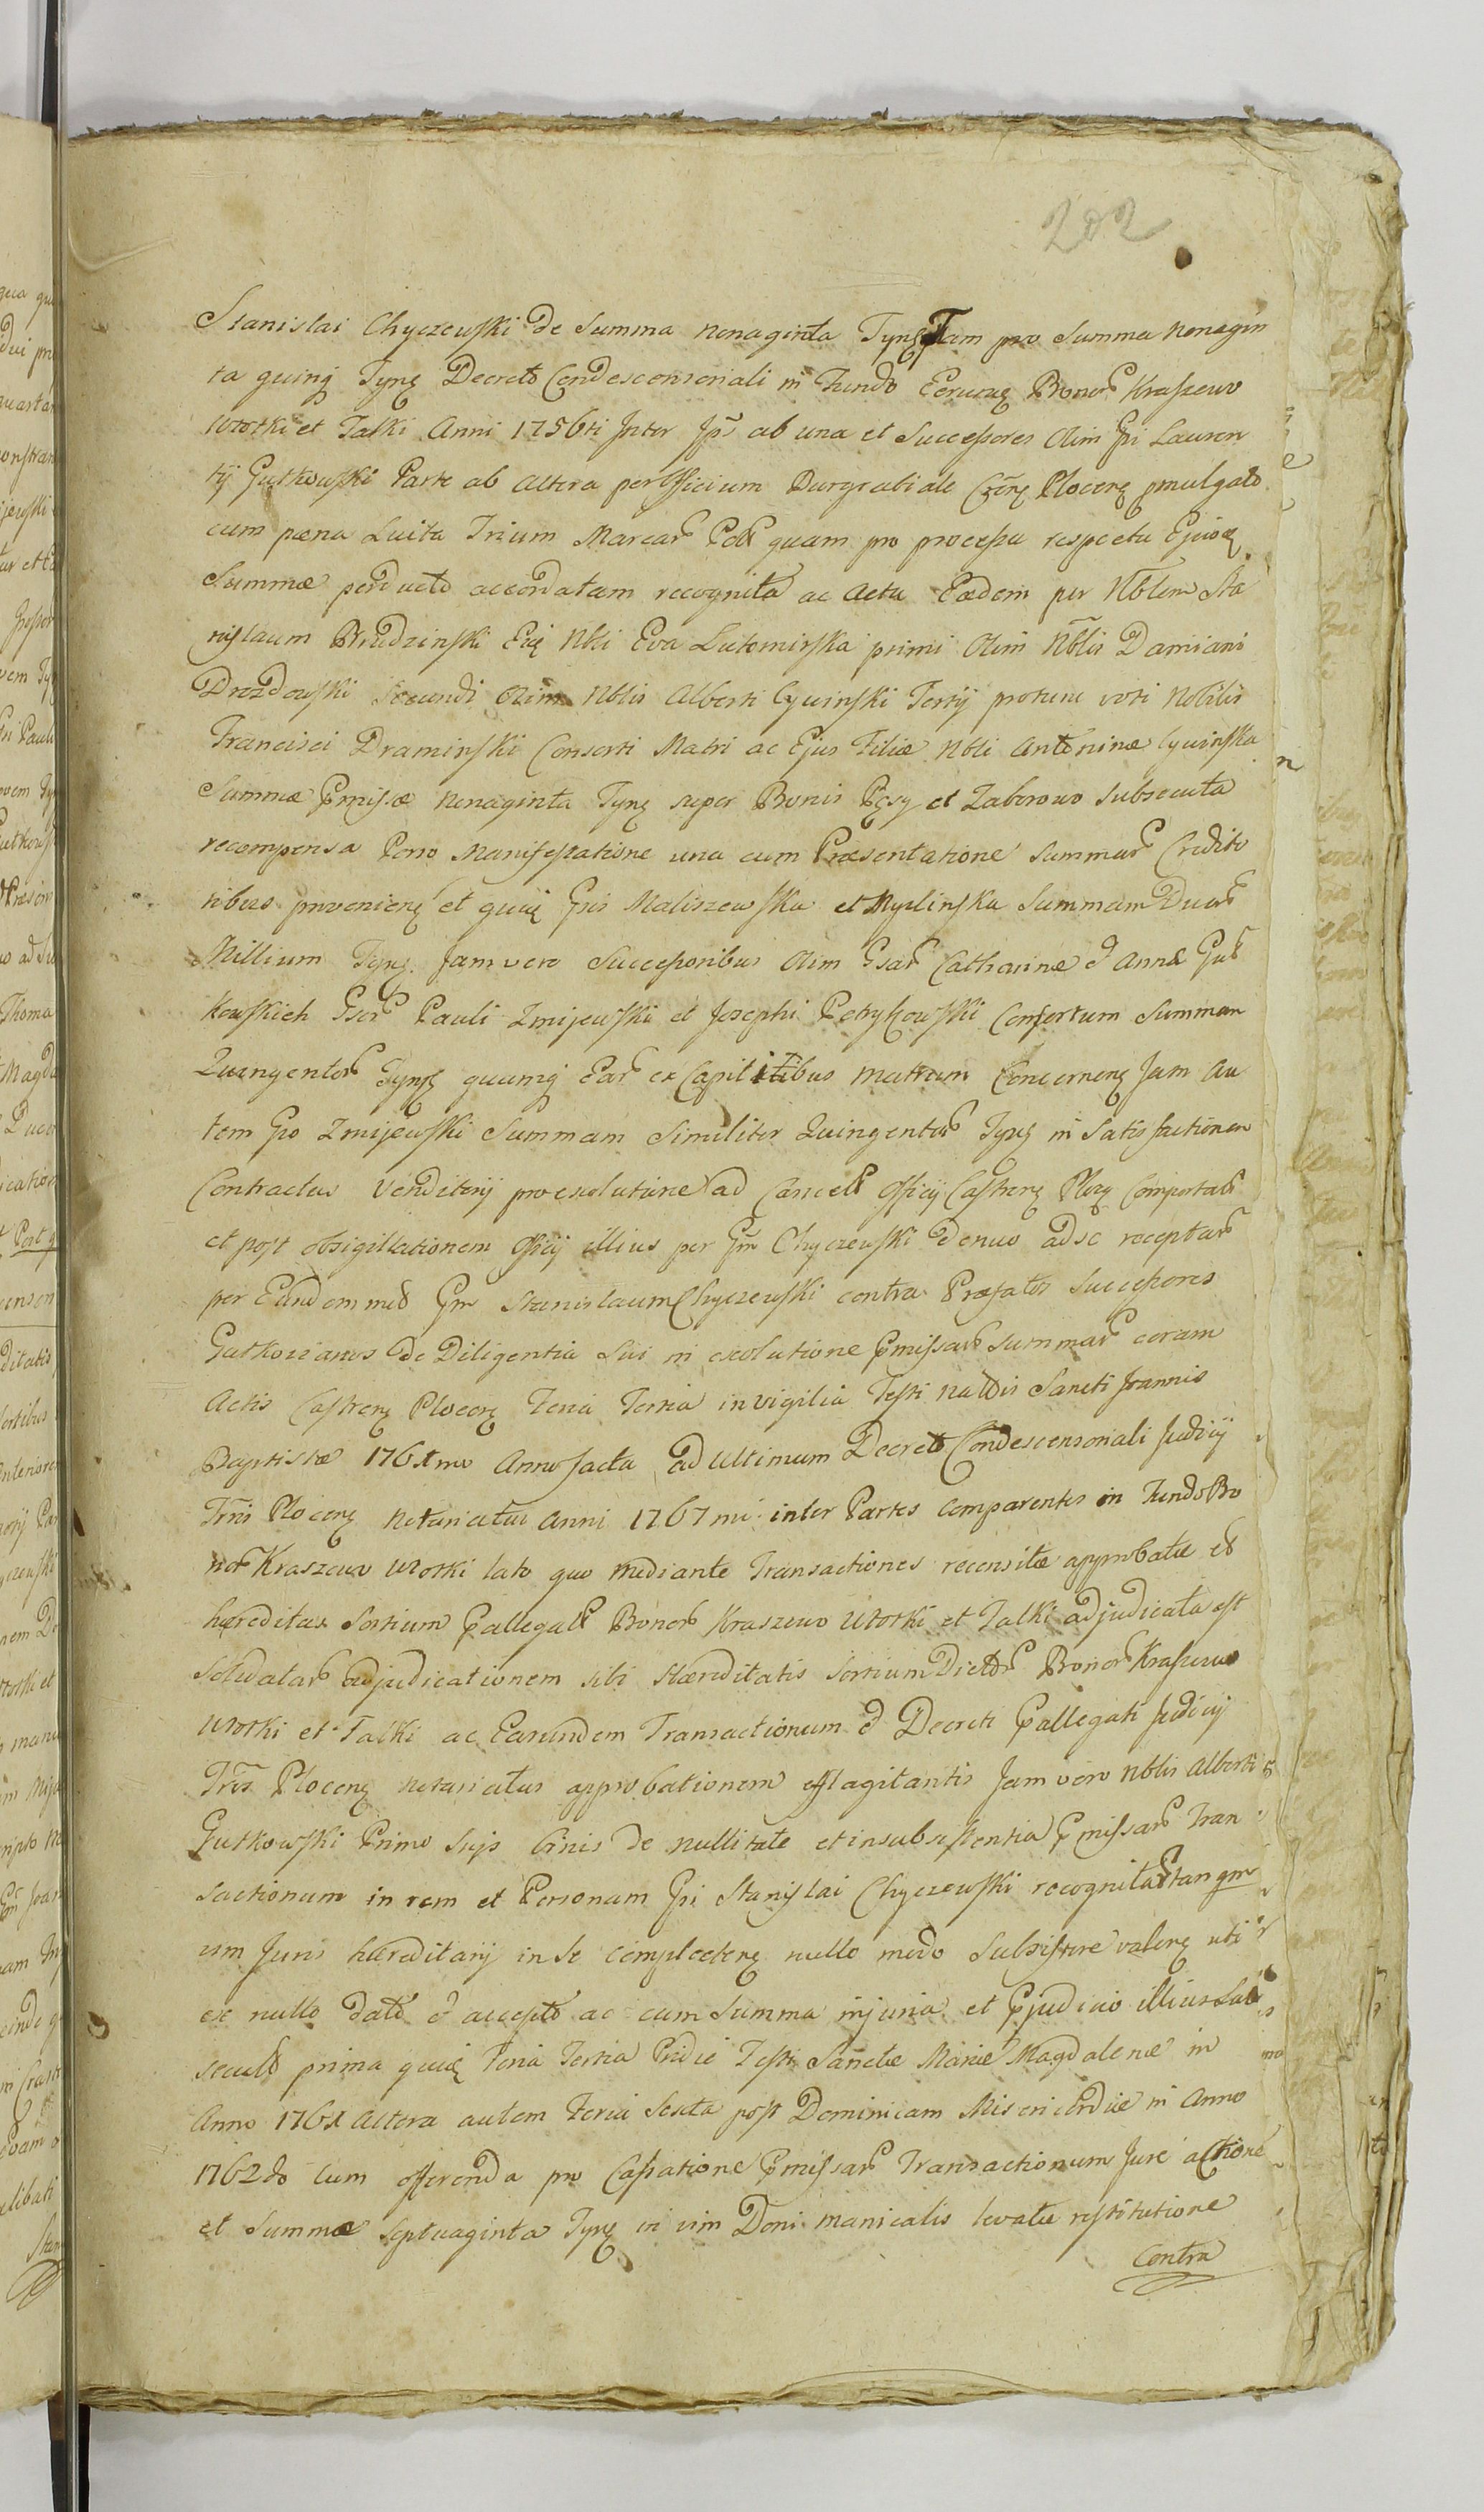 202
Stanislai Chyczewski de Summa nonaginta Tynf Tam pro Summa nonagin
ta quinq Tynf Decreto Condescensoriali in Fundo Bonor Kraszewo
Wrotki et Talki Anni 1756ti Inter Ips ab una et Successores Olim Gsi Lauren
tij Gutkowski Parte ab altera per Officium Burgrabiale Plocen pmulgato
cum pæna Luita Trium Marcar Poll quam pro processu respectu Ejusd
Summæ perducto accordatam recognita ac Acta Eadem per Nblem Sta
nislaum Brudzinski Nbli Eva Lutomirska primi Olim Nblis Damiani
Drozdowski secundi Olim Nblis Alberti Cywinski Tertij protunc voti Nobilis
Francisci Draminski Consorti Matri ac Ejus Filiæ Nbli Antoninæ Cywinska
Summæ Pmissæ nonaginta Tynf super Bonis Pęsy et Zaborowo subsecuta
recompensa Porro Manifestatione una cum Præsentatione Summar Credito
ribus provenien et quid Gsis Maliszewska et Myslinska Summam Duar
Millium Tynf Jam vero Successoribus Olim Gsar Catharinæ & Annæ Gut
kowskich Gsor Pauli Zmijewski et Josephi Petrykowski Consortum Summam
Quingentor Tynf quamq Ear ex Capitibus matrum Concernen Jam Au
tem Gso Zmijewski Summam Similiter Quingentor Tynf in Satisfactionem
Contractus Venditorij pro exolutione ad Cancell Officij Castren Plocen Comportat
et post obsigillationem Officij illius per Gsm Chyczewski denuo ad se receptar
per Eundemmet Gsm Stanislaum Chyczewski contra Præfatos Successores
Gutkovianos de Diligentia Sui in exolutione Pmissar Summar coram
Actis Castren Plocen Feria Tertia in vigilia Festi natis Sancti Joannis
Baptistæ 1761mo Anno facta ad ultimum Decreto Condescensoriali Judicij
Trris Plocen Notariatus Anni 1767mi inter Partes Comparentes in Fundo Bo
nor Kraszewo Wrotki lato quo mediante Transactiones recensitæ approbatæ et
hæreditas Sortium Pallegat Bonor Kraszewo Wrotki et Talki adjudicata est
Solidatar adjudicationem sibi Hæreditatis Sortium Dictor Bonor Kraszewo
Wrotki et Talki ac Earundem Transactionum & Decreti Pallegati Judicij
Trris Plocen Notariatus approbationem efflagitantis Jam vero Nblis Alberti
Gutkowski Primo Sujs binis de nullitate et insubsistentia Pmissar Tran
sactionum in rem et Personam Gsi Stanislai Chyczewski recognitar tanqm
um Juris hæreditarij in se complecten nullo modo Subsistere valen uti
ex nullo dato & accepto ac cum Summa injuria et Pjudicio illius Sub
secuto prima quid Feria Tertia Pridie Festi Sanctæ Mariæ Magdalenæ in
Anno 1761 altera autem Feria Sexta post Dominicam Misericordiæ in Anno
1762do cum offerenda pro Cassatione Pmissar Transactionum Jure actione
et Summæ Septuaginta Tynf in vim Doni manicalis levatæ restitutione
Contra